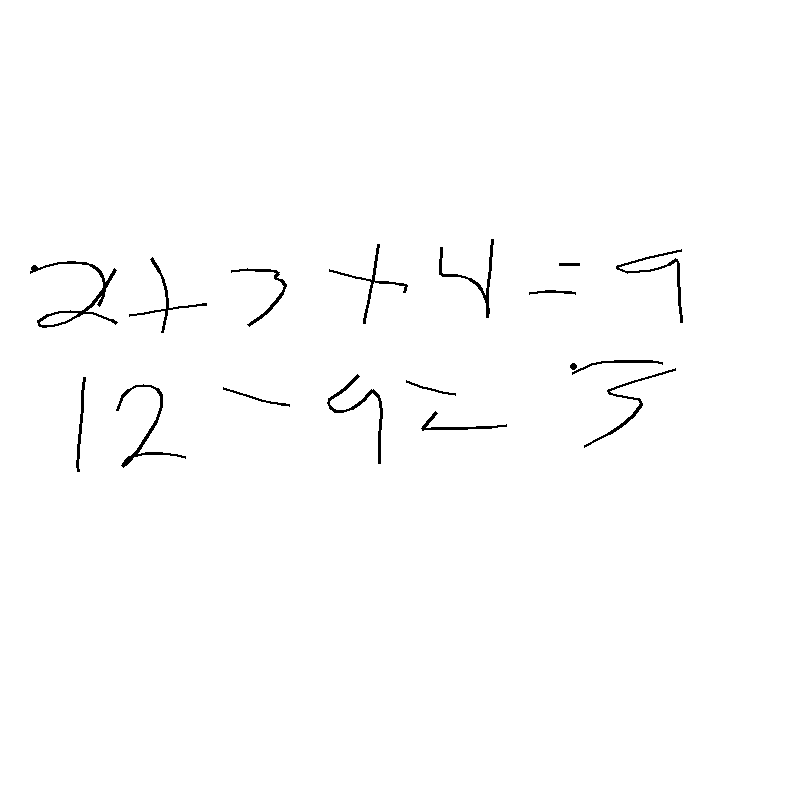 2+3+4=9
12-9=3